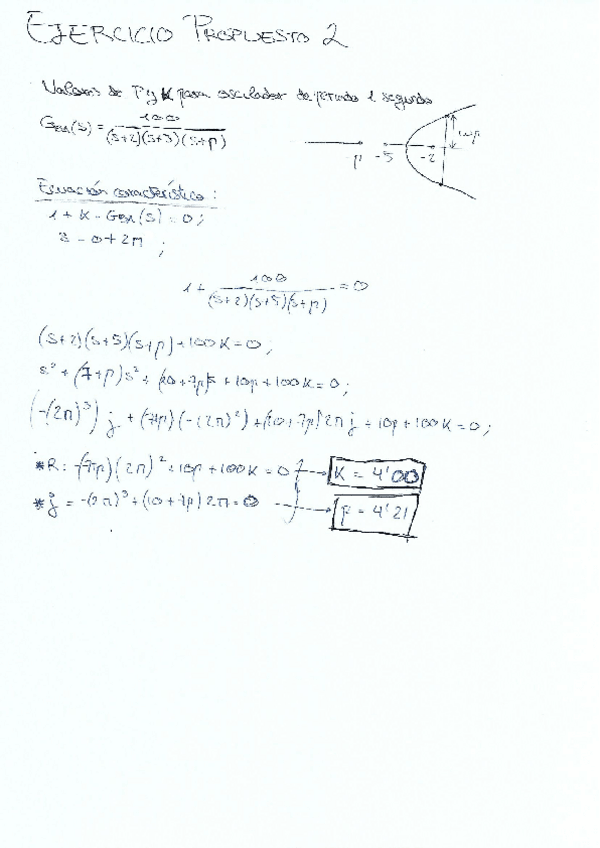 EJERCICIO PROPUESTO 2
Valores de P y K para oscilador de periodo 1 segundo
Gen(s) = 100 / (s+2)(s+5)(s+p)
p -5 -2 wp
Ecuación característica:
1 + K - Gen(s) = 0;
s = 0 + 2π ;
1 + 100 / (s+2)(s+5)(s+p) = 0
(s+2)(s+5)(s+p) + 100K = 0;
s³ + (7+p)s² + (10+7p)s + 10p + 100K = 0;
(-(2π)³) j + (7+p)(-(2π)²) + (10+7p) 2π j + 10p + 100K = 0;
*R: -(7+p)(2π)² + 10p + 100K = 0 → K = 4'00
*j = -(2π)³ + (10+7p) 2π = 0 → p = 4'21